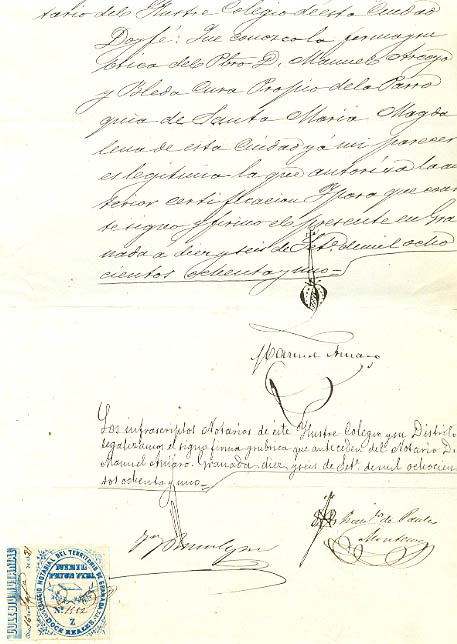 tario del Ilustre Colegio de esta Ciudad
Doy fé: Que conozco la firma y ru
brica del Pbro. D. Manuel Arcoya
y Bleda Cura Propio de la Parro
quia de Santa Maria Magda
lena de esta Ciudad y á mi parecer
es legitima la que autoriza la an
terior certificacion Y para que cons
te signo y firmo el presente en Gra
nada a diez y seis de Set.e de mil ocho
cientos ochenta y uno
Manuel
Los infrascriptos Notarios de este Ilustre Colegio y su Distrito
legalizamos el signo firma y rubrica que anteceden del Notario D.
Manuel Granada diez y seis de Set.e de mil ochocien
tos ochenta y uno
de Paula
Montero
COLEGIO NOTARIAL DEL TERRITORIO DE GRANADA
NIHIL PRIUS FIDE
No. 1582
DOCE REALES
Z